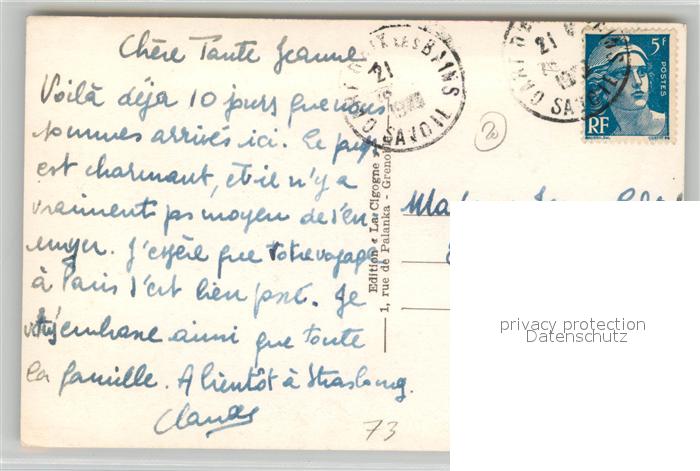 Chère Tante Jeanne
Voilà déja 10 jours que nous
sommes arrivés ici. Le pays
est charmant, et il n'y a
vraiment pas moyen de s'en
nuyer. J'espère que votre voyage
à Paris s'est bien passé. Je
vous embrasse ainsi que toute
la famille. A bientôt à Strasbourg.
Claude
73
Edition « La Cigogne »
1, rue de Palanka - Grenoble
AIX LES BAINS
21
SAVOIE
21
SAVOIE
5F
POSTES
RF
2
privacy protection
Datenschutz